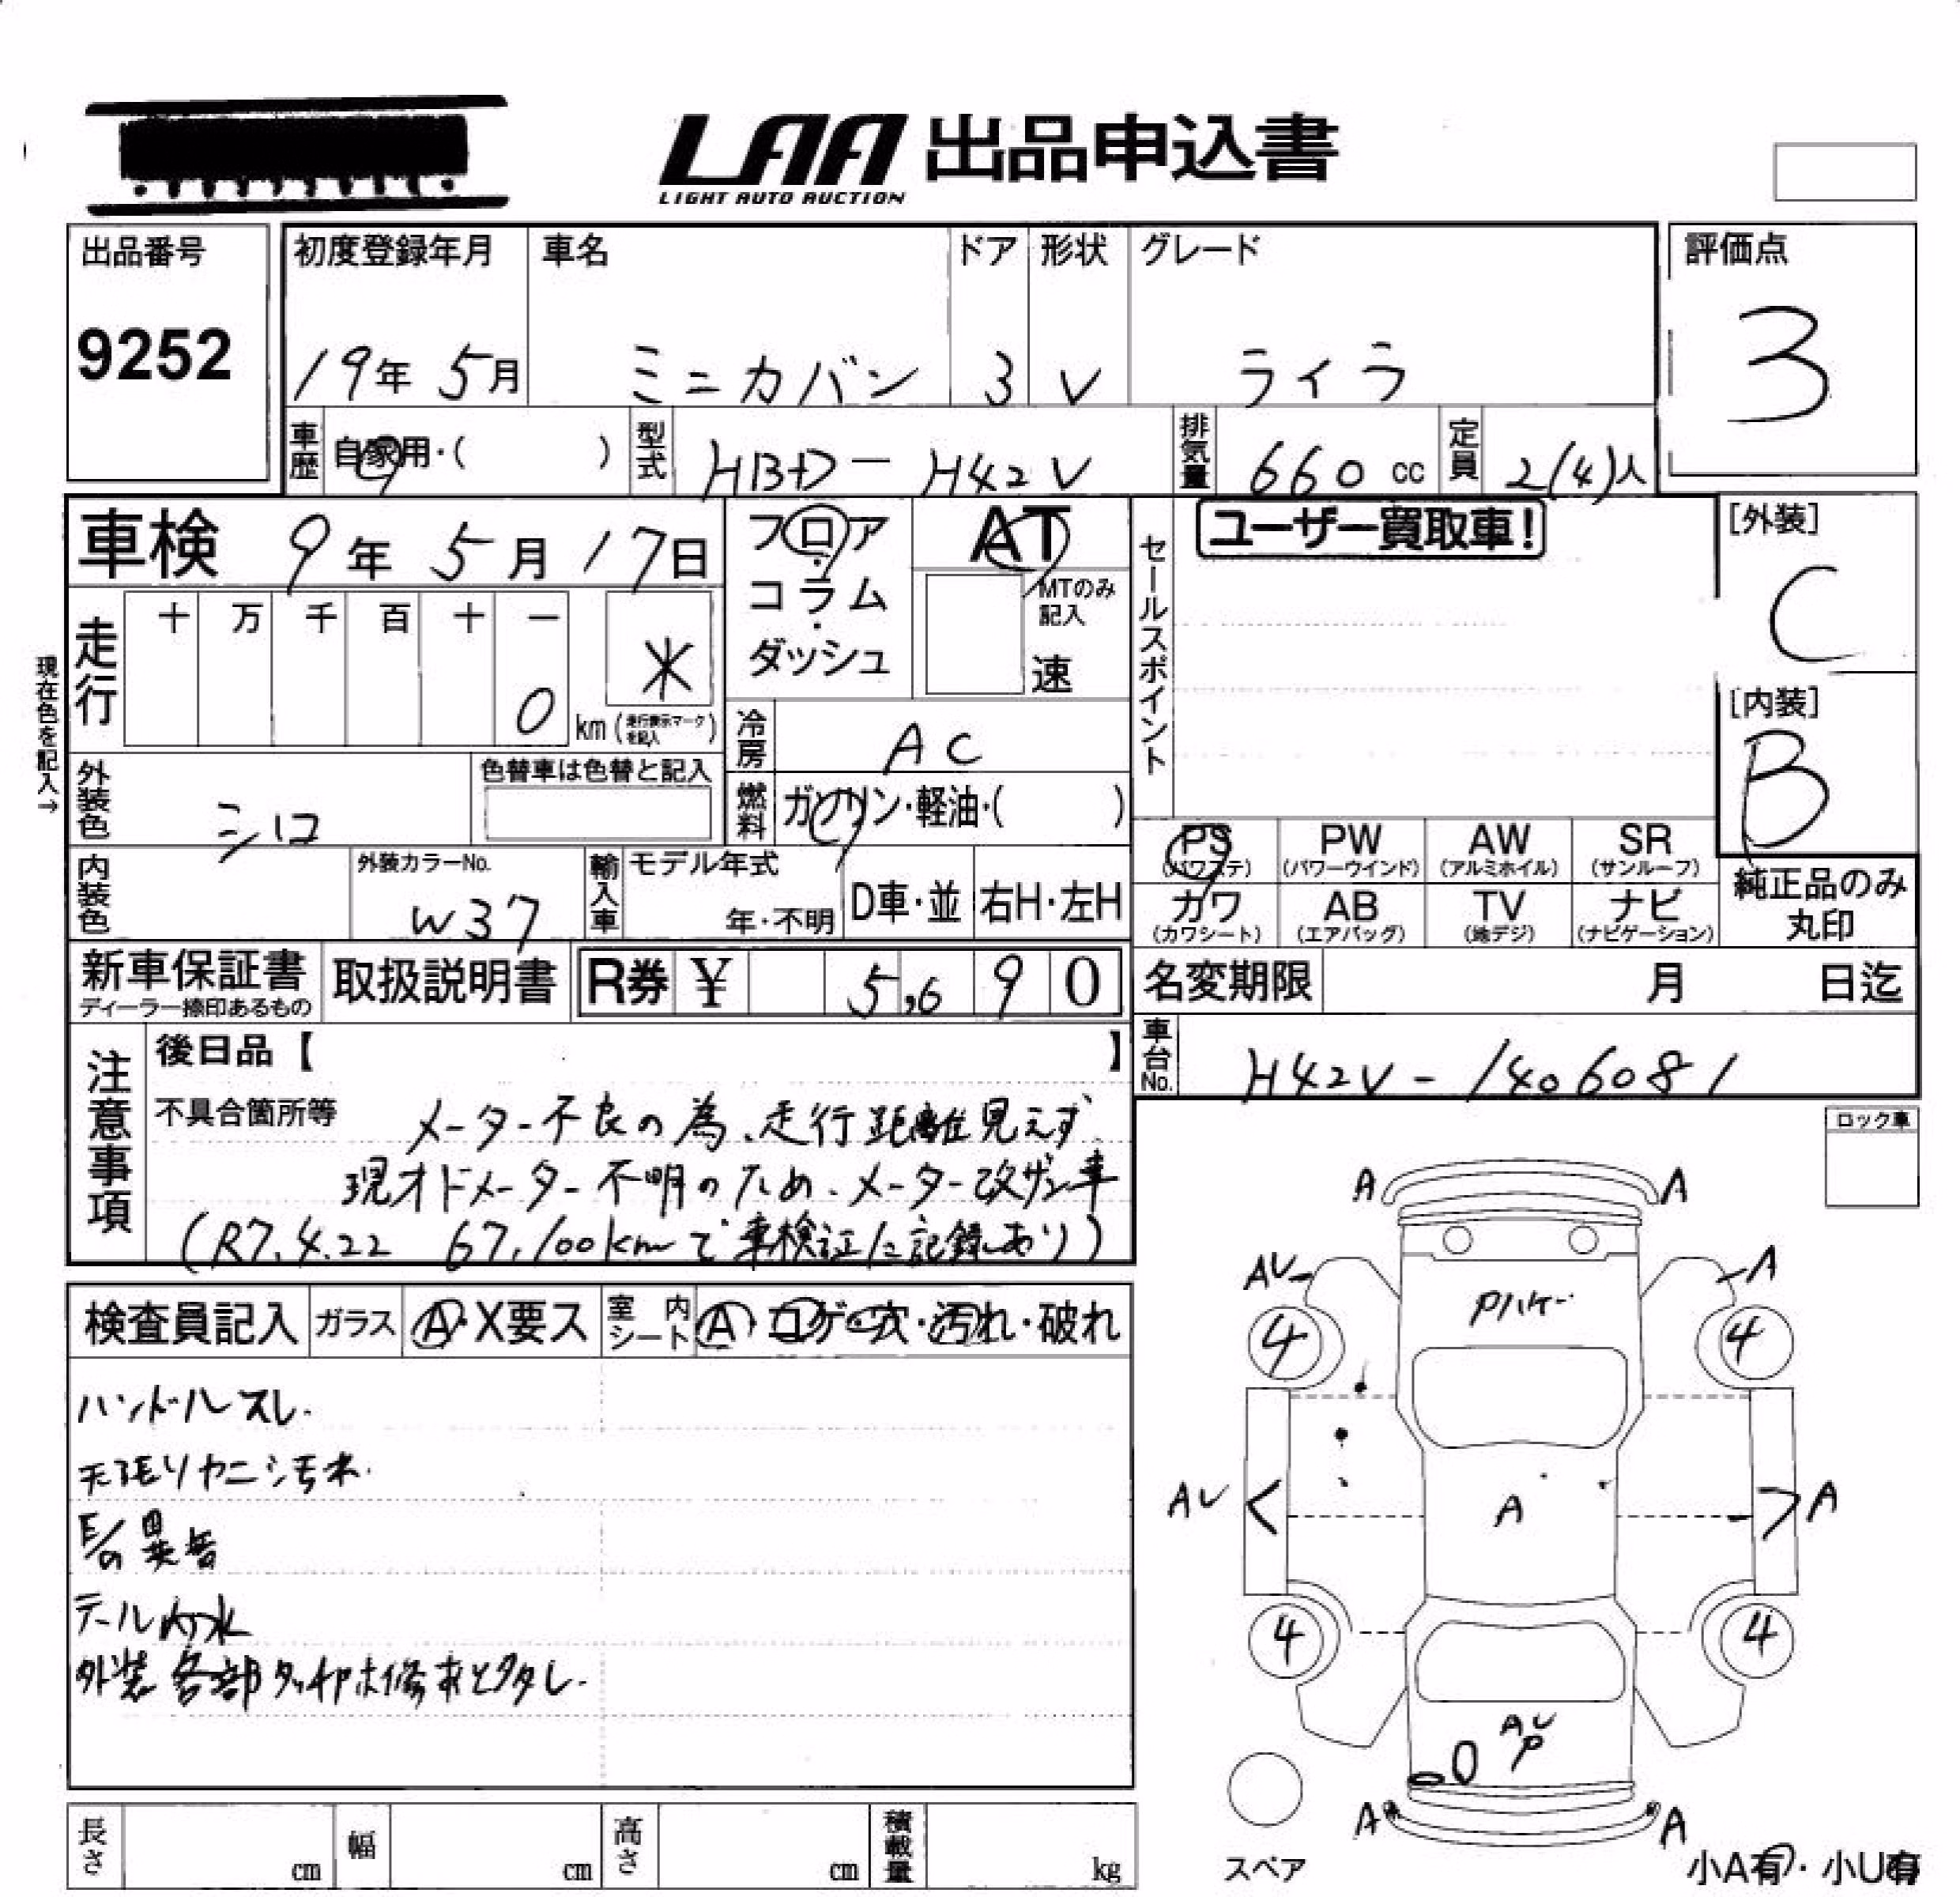 LAA 出品申込書
LIGHT AUTO AUCTION
出品番号
9252
初度登録年月
19年 5月
車名
ミニカバン
ドア
3
形状
V
グレード
ライラ
評価点
3
車歴 自家用・( )
型式 HBD-H42V
排気量 660 cc
定員 2(4)人
車検 9年 5月 17日
フロア・コラム・ダッシュ
AT
MTのみ記入
速
セールスポイント
ユーザー買取車!
[外装]
C
[内装]
B
現在色を記入→
走行 十 万 千 百 十 一
0 km (走行表示マークを記入)
*
冷房 AC
外装色 シロ
色替車は色替と記入
燃料 ガソリン・軽油・( )
PS (パワステ)
PW (パワーウインド)
AW (アルミホイル)
SR (サンルーフ)
カワ (カワシート)
AB (エアバッグ)
TV (地デジ)
ナビ (ナビゲーション)
純正品のみ丸印
内装色
外装カラーNo.
W37
輸入車 モデル年式
年・不明
D車・並
右H・左H
新車保証書
ディーラー捺印あるもの
取扱説明書
R券 ¥ 5,690
名変期限 月 日迄
車台No. H42V-1406081
注意事項
後日品【 】
不具合箇所等 メーター不良の為、走行距離見えず
現オドメーター不明のため、メーター改ザン車
(R7.4.22 67,100kmで車検証に記録あり)
ロック車
検査員記入
ガラス A・X要ス
室内シート A・コゲ・穴・汚れ・破れ
ハンドルスレ.
天張リヤニシミ汚れ.
E/の異音
テール内水
外装各部タッチP未修あと多タし.
A A
AU A
Pハゲ
4 4
AU A A
4 4
AU
P
A A
スペア
小A有・小U有
長さ cm
幅 cm
高さ cm
積載量 kg